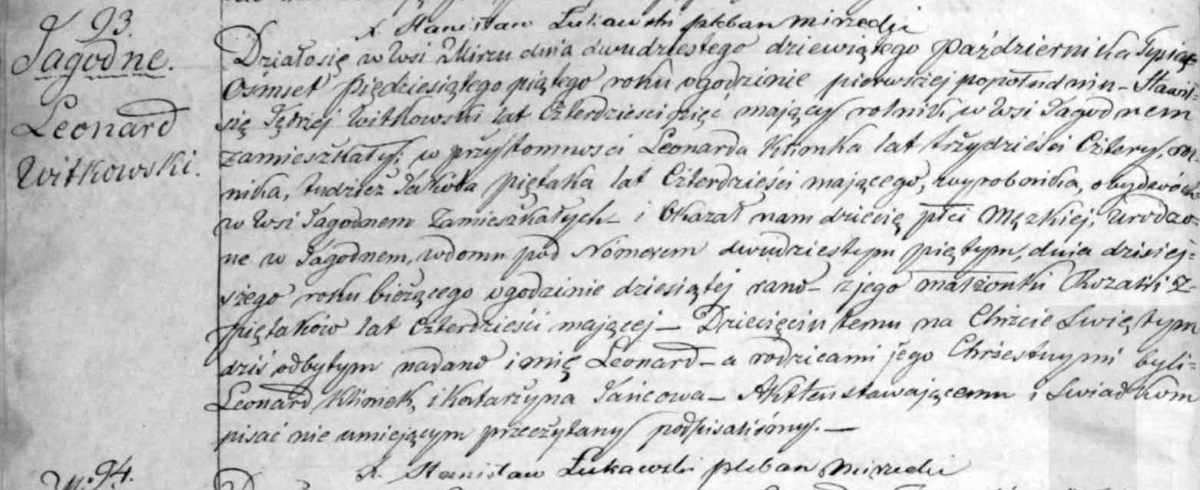 X. Stanisław Łukawski pleban mirzecki
93.
Jagodne.
Leonard
Witkowski.
Działo się w Wsi Mirzu dnia dwudziestego dziewiątego Października Tysiąc
Ośmset pięдziesiątego piątego roku o godzinie pierwszej popołudniu – Stawił
się Jędrzej Witkowski lat czterdzieści pięć mający rolnik w Wsi Jagodnem
zamieszkały, w przytomności Leonarda Klionka lat trzydzieści cztery, rol-
nika, tudzież Jakóba Piętaka lat czterdzieści mającego, wyrobnika, obydwóch
w Wsi Jagodnem zamieszkałych – i okazał nam dziecię płci męzkiej, urodzo
ne w Jagodnem, w domu pod Nómerem dwudziestym piętym, dnia dzisiej-
szego roku bieżącego o godzinie dziesiątej rano – z jego małżonki Rozalii z
Piętaków lat czterdzieści mającej – Dziecięciu temu na Chrzcie Swiętym
dziś odbytym nadano imię Leonard – a rodzicami jego Chrzestnymi byli –
Leonard Klionek, i Katarzyna Jańcowa – Akt ten stawającemu i Swiadkom
pisać nie umiejącym przeczytany podpisaliśmy. –
X. Stanisław Łukawski pleban mirzecki
94.